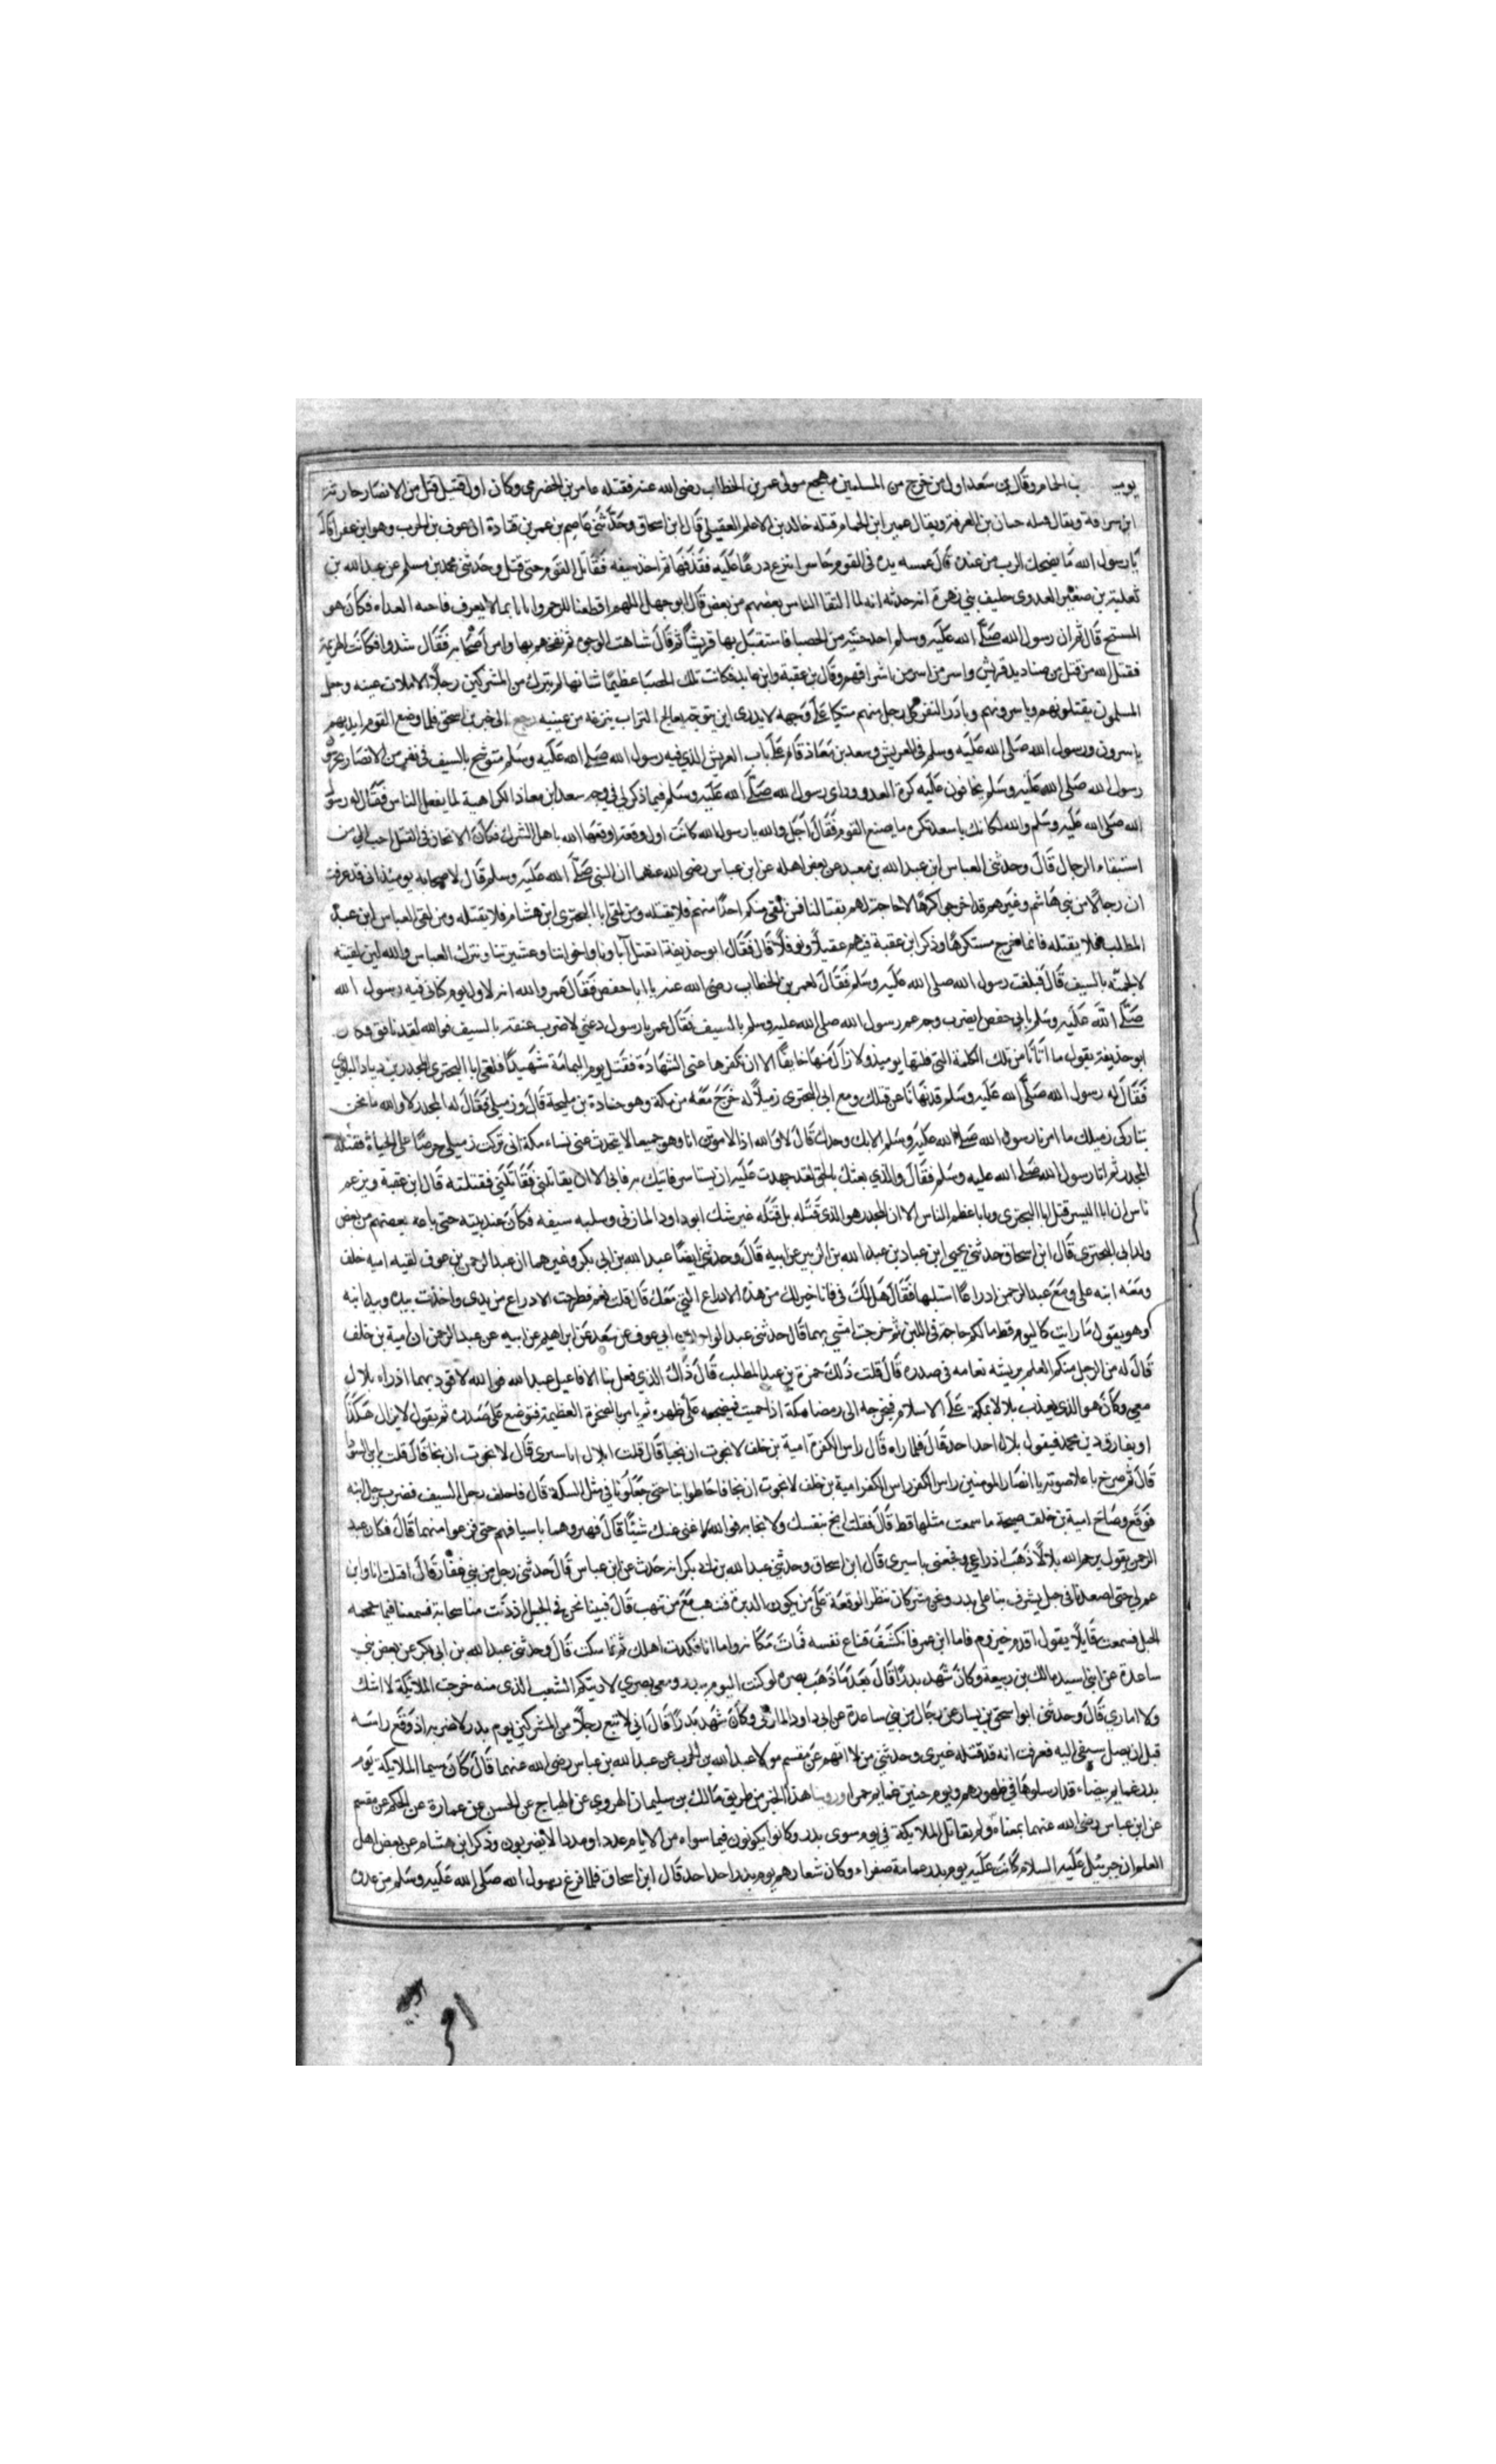 ب الحمام وقال بن سعد اول من خرج من المسلمين مهجع مولى عمر بن الخطاب رضى الله عنه فقتله عامر بن الحضرمى وكان اول قتيل قتل من الانصار حارثة
ابن سراقة ويقال قتله حبان بن العرقة ويقال عمير ابن الحمام قتله خالد بن الاعلم العقيلى قال ابن اسحاق وحدثنى عاصم بن عمر بن قتادة ان عوف بن الحرب وهو ابن عفرا قال
يا رسول الله ما يضحك الرب من عبده قال غمسه يده فى القوم حاسرا نتزع درعا عليه فقذفها ثم اخذ سيفه فقاتل القوم حتى قتل وحدثنى محمد بن مسلم عن عبد الله بن
ثعلبة بن صغير العدوى حليف بنى زهرة انه حدثه انه لما التقا الناس بعضهم من بعض قال ابو جهل اللهم اقطعنا للرحم واتانا بما لا يعرف فاحنه الغداه فكان هو
المستفتح قال ثم ان رسول الله صلى الله عليه وسلم اخذ حفنة من الحصبا فاستقبل بها قريشا ثم قال شاهت الوجوه ثم نفحهم بها وامر اصحابه فقال شدوا فكانت الهزيمة
فقتل الله من قتل من صناديد قريش واسر من اسر من اشرافهم وقال بن عقبة وابن عايذ فكانت تلك الحصبا عظيما شانها لم يترك من المشركين رجلا الا ملات عينه وجعل
المسلمون يقتلونهم وياسرونهم وبادر النفر كل رجل منهم منكبا على وجهه لا يدرى اين يتوجه يعالج التراب ينزعه من عينيه رجع الى خبر بن اسحق فلما وضع القوم ايديهم
ياسرون ورسول الله صلى الله عليه وسلم فى العريش وسعد بن معاذ قام على باب العريش الذي فيه رسول الله صلى الله عليه وسلم متوشح بالسيف فى نفر من الانصار يحرسون
رسول الله صلى الله عليه وسلم يخافون عليه كرة العدو وراى رسول الله صلى الله عليه وسلم فيما ذكر لى فى وجه سعد ابن معاذ الكراهية لما يفعل الناس فقال له رسول
الله صلى الله عليه وسلم والله لكانك يا سعد تكره ما يصنع القوم فقال اجل والله يا رسول الله كانت اول وقعة اوقعها الله باهل الشرك فكان الاثخان فى القتل احب الي من
استبقاء الرجال قال وحدثنى العباس ابن عبد الله بن معبد عن بعض اهله عن ابن عباس رضى الله عنهما ان النبى صلى الله عليه وسلم قال لاصحابه يومئذ انى قد عرفت
ان رجالا من بنى هاشم وغيرهم قد اخرجوا كرها لا حاجة لهم بقتالنا فمن لقى منكم احدا منهم فلا يقتله ومن لقى ابا البحترى ابن هشام فلا يقتله ومن لقى العباس ابن عبد
المطلب فلا يقتله فانما اخرج مستكرها وذكر ابن عقبة فيهم عقيلا ونوفلا قال فقال ابو حذيفة انقتل آباونا واخواننا وعشيرتنا ونترك العباس والله لين لقيته
لالجمنه بالسيف قال فبلغت رسول الله صلى الله عليه وسلم فقال لعمر بن الخطاب رضى الله عنه يا ابا حفص فقال عمر والله انه لاول يوم كنانى فيه رسول الله
صلى الله عليه وسلم بابى حفص ايضرب وجه عم رسول الله صلى الله عليه وسلم بالسيف فقال عمر يا رسول دعنى لاضرب عنقه بالسيف فوالله لقد نافق فكان
ابو حذيفة يقول ما انا امن من تلك الكلمة التى قلتها يوميذ ولا ازال منها خايفا الا ان تكفرها عنى الشهادة فقتل يوم اليمامة شهيدا فلقى ابا البحترى المجدر بن دياد البلوى
فقال له رسول الله صلى الله عليه وسلم قد نهانا عن قتلك ومع ابى البحترى زميلا له خرج معه من مكة وهو جنادة بن مليحة قال وزميلى فقال له المجدر لا والله ما نحن
بتاركى زميلك ما امرنا رسول الله صلى الله عليه وسلم الا بك وحدك قال لا والله اذا لاموتن انا وهو جميعا لا يتحدث عنى نساء مكة انى تركت زميلى حرصا على الحياة فقتله
المجدر ثم اتا رسول الله صلى الله عليه وسلم فقال والذي بعثك بالحق لقد جهدت عليه ان يستاسر فاتيك به فابى الا ان يقاتلنى فقاتلنى فقتلته قال ابن عقبة ويزعم
ناس ان ابا اليسر قتل ابا البحترى ويابا عظم الناس الا ان المجدر هو الذى قتله بل قتله غير شك ابو داود المازنى وسلبه سيفه فكان عند بنيه حتى باعه بعضهم من بعض
ولد ابى البحترى قال ابن اسحاق حدثنى يحيى ابن عباد بن عبد الله بن الزبير عن ابيه قال وحدثنى ايضا عبد الله بن ابى بكر وغيرهما ان عبد الرحمن بن عوف لقيه اميه خلف
ومعه ابنه على ومع عبد الرحمن ادراعا استلبها فقال هل لك فى فانا خير لك من هذه الادراع التى معك قال قلت نعم فطرحت الادراع من يدى واخذت بيده وبيد ابنه
وهو يقول ما رايت كاليوم قط ما لكم حاجة فى اللبن ثم خرجت امشى بهما قال حدثنى عبد الواحد ابن ابى عوف عن سعد عن ابراهيم عن ابيه عن عبد الرحمن ان امية بن خلف
قال له من الرجل منكم المعلم بريشه نعامه فى صدره قال قلت ذلك حمزة بن عبد المطلب قال ذاك الذي فعل بنا الافاعيل عبد الله فوالله لاقودهما اذ راه بلال
معى وكان هو الذى يعذب بلالا بمكة على الاسلام فيخرجه الى رمضا مكة اذا حميت فيضجعه على ظهره ثم يامر بالصخرة العظيمة فتوضع على صدره ثم يقول لا يزال هكذا
او يفارق دين محمد فيقول بلال احد احد قال فلما راه قال راس الكفر امية بن خلف لا نجوت ان نجيا قال قلت ابلال اباسيرى قال لا نجوت ان نجا قال قلت يا بن السودا
قال ثم صرخ باعلا صوته يا انصار المومنين راس الكفر راس الكفر امية بن خلف لا نجوت ان نجا فاحاطوا بنا حتى جعلونا فى مثل المسكة قال فاخلف رجل السيف فضرب رجل ابنه
فوقع وصاخ امية بن خلف صيحة ما سمعت مثلها قط قال فقلت انج بنفسك ولا نجا به فوالله ما اغنى عنك شيئا قال فهبروهما باسيافهم حتى فرغوا منهما قال فكان عبد
الرحمن يقول يرحم الله بلالا ذهب ادراعى وفجعنى باسيرى قال ابن اسحاق وحدثنى عبد الله بن ابى بكر انه حدث عن ابن عباس قال حدثنى رجل من بنى غفار قال اقبلت انا وابن
عم لى حتى اصعدنا فى جبل يشرف بنا على بدر ونحن مشركان ننظر الوقعة على من يكون الدبرة فننهب مع من نهب قال فبينا نحن فى الجبل اذ دنت منا سحابة فسمعنا فيها حمحمه
الخيل فسمعت قايلا يقول اقدم حيزوم فاما ابن عمى فانكشف قناع نفسه فمات مكانه واما انا فكدت اهلك ثم تماسكت قال وحدثنى عبد الله بن ابى بكر عن بعض بنى
ساعدة عن ابى اسيد مالك بن ربيعة وكان شهد بدرا قال بعد ما ذهب بصره لو كنت اليوم ببدر ومعى بصري لاريتكم الشعب الذى منه خرجت الملائكة لا اشك
ولا امارى قال وحدثنى ابو اسحق بن يسار عن رجال من بنى ساعدة عن ابى داود المازنى وكان شهد بدرا قال انى لاتبع رجلا من المشركين يوم بدر لاضربه اذ وقع راسه
قبل ان يصل سيفى اليه فعرفت انه قد قتله غيرى وحدثنى من لا اتهم عن مقسم مولا عبد الله بن الحرب عن عبد الله بن عباس رضى الله عنهما قال كان سيما الملايكة يوم
بدر عمايم بيضاء قد ارسلوها فى ظهورهم ويوم حنين عمايم حمرا وروينا هذا الخبر من طريق مالك بن سليمان الهروى عن الهياج عن الحسن عن عمارة عن الحكم عن مقسم
عن ابن عباس رضى الله عنهما بمعناه ولم يقاتل الملايكة فى يوم سوى بدر وكانوا يكونون فيما سواه من الايام عددا ومددا لا يضربون وذكر ابن هشام عن بعض اهل
العلم ان جبرئيل عليه السلام كانت عليه يوم بدر عمامة صفراء وكان شعارهم يوم بدر احد احد قال ابن اسحاق فلما فرغ رسول الله صلى الله عليه وسلم من عدوه